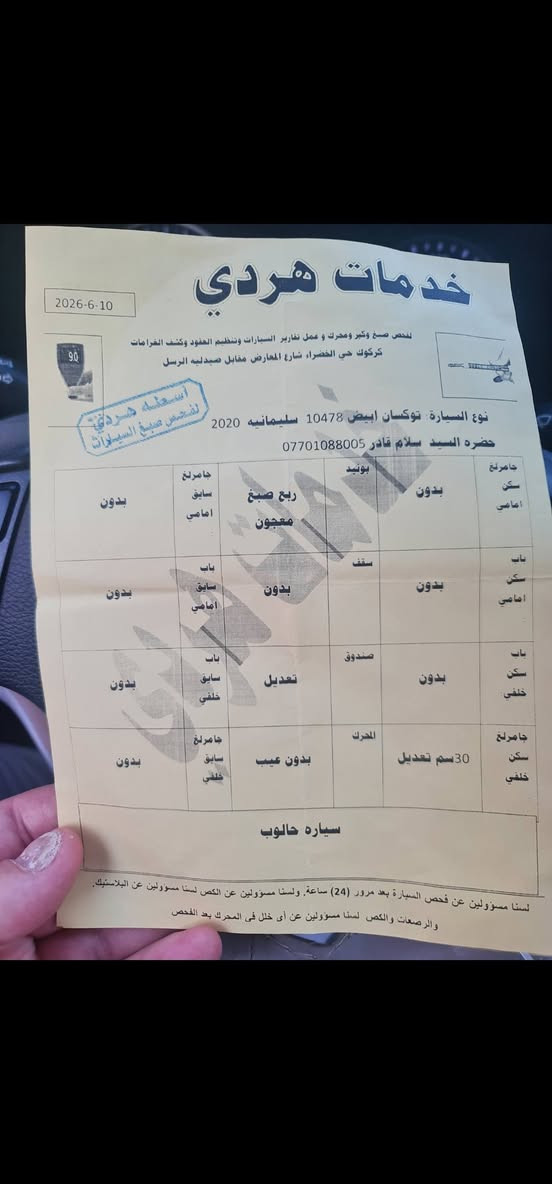 خدمات هردي
2026-6-10
لفحص صبغ وكير ومحرك و عمل تقارير السيارات وتنظيم العقود وكشف الغرامات
كركوك حي الخضراء شارع المعارض مقابل صيدليه الرسل
90
هردي
لفحص صبغ السيارات
نوع السيارة: توكسان ابيض 10478 سليمانيه 2020
حضره السيد سلام قادر 07701088005
جامرلغ سكن امامي
بدون
بونيد
ربع صبغ معجون
جامرلغ سايق امامي
بدون
باب سكن امامي
بدون
سقف
بدون
باب سايق امامي
بدون
باب سكن خلفي
بدون
صندوق
تعديل
باب سايق خلفي
بدون
جامرلغ سكن خلفي
30سم تعديل
المحرك
بدون عيب
جامرلغ سايق خلفي
بدون
سياره حالوب
لسنا مسؤولين عن فحص السيارة بعد مرور (24) ساعة. ولسنا مسؤولين عن الكص لسنا مسؤولين عن البلاستيك.
والرصعات والكص لسنا مسؤولين عن أى خلل فى المحرك بعد الفحص
خدمات هردي